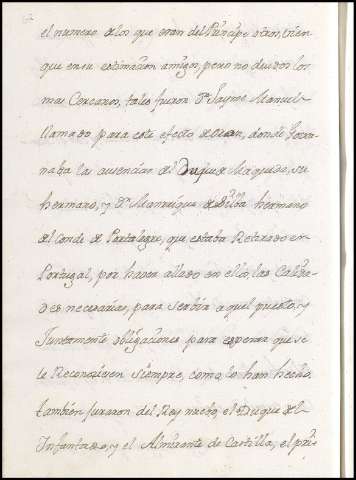 el numero de los que eran del Principe otros, bien
que en su estimacion amigos, pero no deudos los
mas Cercanos, tales fueron Dn Jayme Manuel
llamado para este efecto de Oran, donde Gover
naba las ausencias del Duque de Maqueda, su
hermano, y Dn Manrique de Silba hermano
del Conde de Portalegre, que estaba Retirado en
Portugal, por haver allado en ellos, las Calida
des necesarias, para serbir aquel puesto, y
Juntamente obligaciones para esperar que se
le Reconociesen siempre, como lo han hecho,
tambien juraron del Rey nuebo, el Duque del
Infantado, y el Almirante de Castilla, el pri